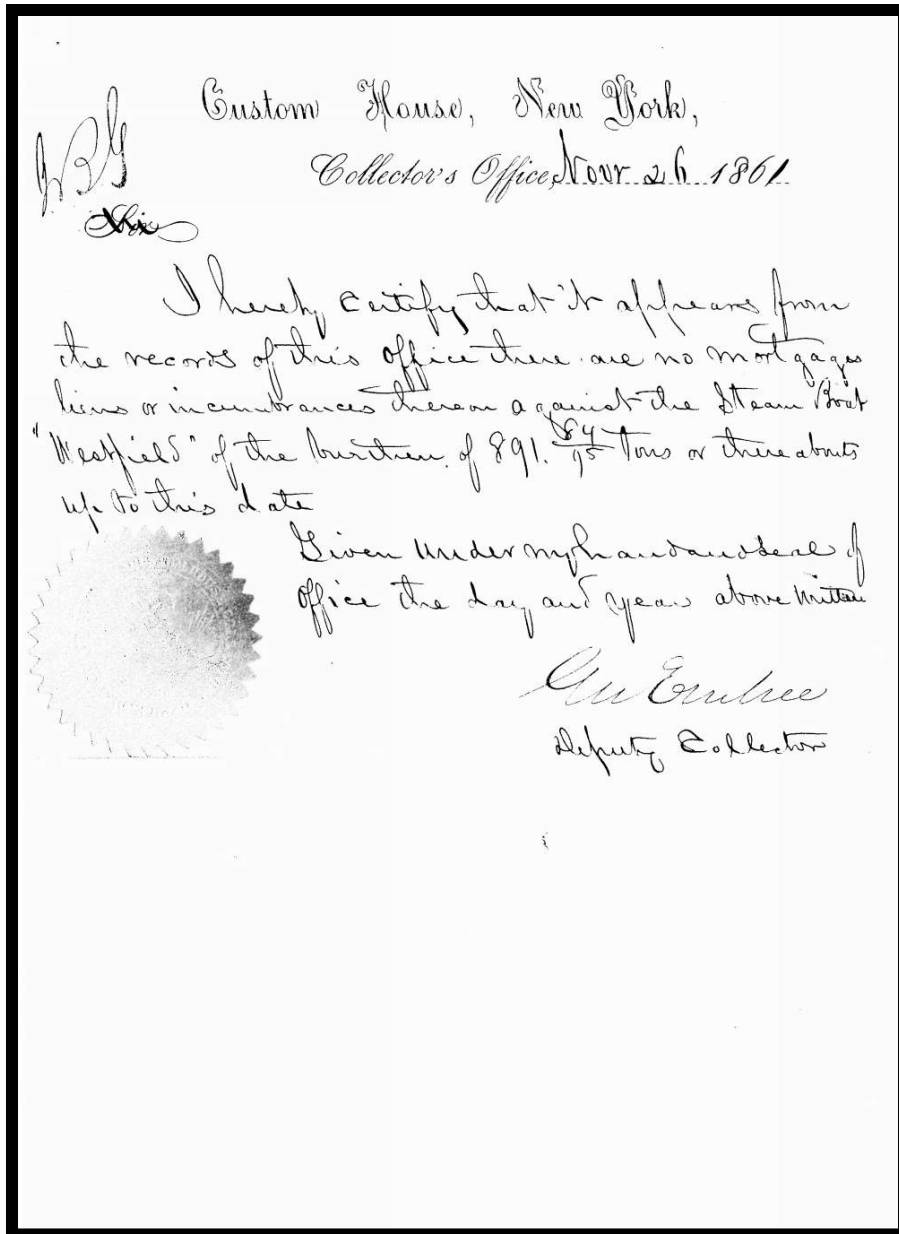 Custom House, New York,
Collector's Office, Novr 26 1861
I hereby certify that it appears from
the records of this office there are no mortgages
liens or incumbrances thereon against the Steam Boat
"Westfield" of the burthen of 891. 84/95 Tons or thereabouts
up to this date
Given under my hand and seal of
office the day and year above written
Deputy Collector